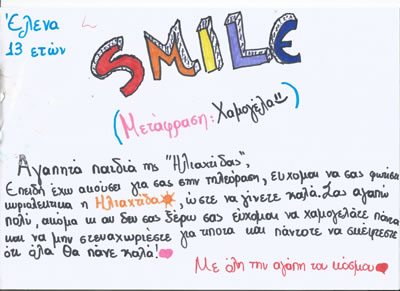 Έλενα
13 ετών
SMILE
(Μετάφραση: Χαμογέλα)
Αγαπητά παιδιά της "Ηλιαχτίδας",
Επειδή έχω ακούσει για σας στην τηλεόραση, εύχομαι να σας φωτίσει
κυριολεκτικά η Ηλιαχτίδα, ώστε να γίνετε καλά. Σας αγαπώ
πολύ, ακόμα κι αν δεν σας ξέρω σας εύχομαι να χαμογελάτε πάντα
και να μην στεναχωριέστε για τίποτα και πάντοτε να σκέφτεστε
ότι όλα θα πάνε καλά!
Με όλη την αγάπη του κόσμου